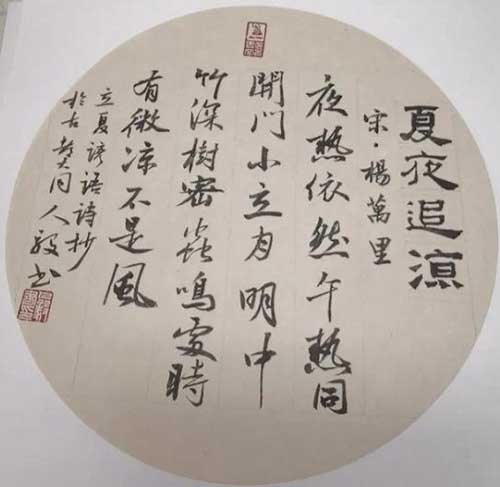 夏夜追涼
宋·楊萬里
夜熱依然午熱同
開門小立月明中
竹深樹密蟲鳴處時
有微涼不是風
立夏諺語詩抄
於古同人毅書